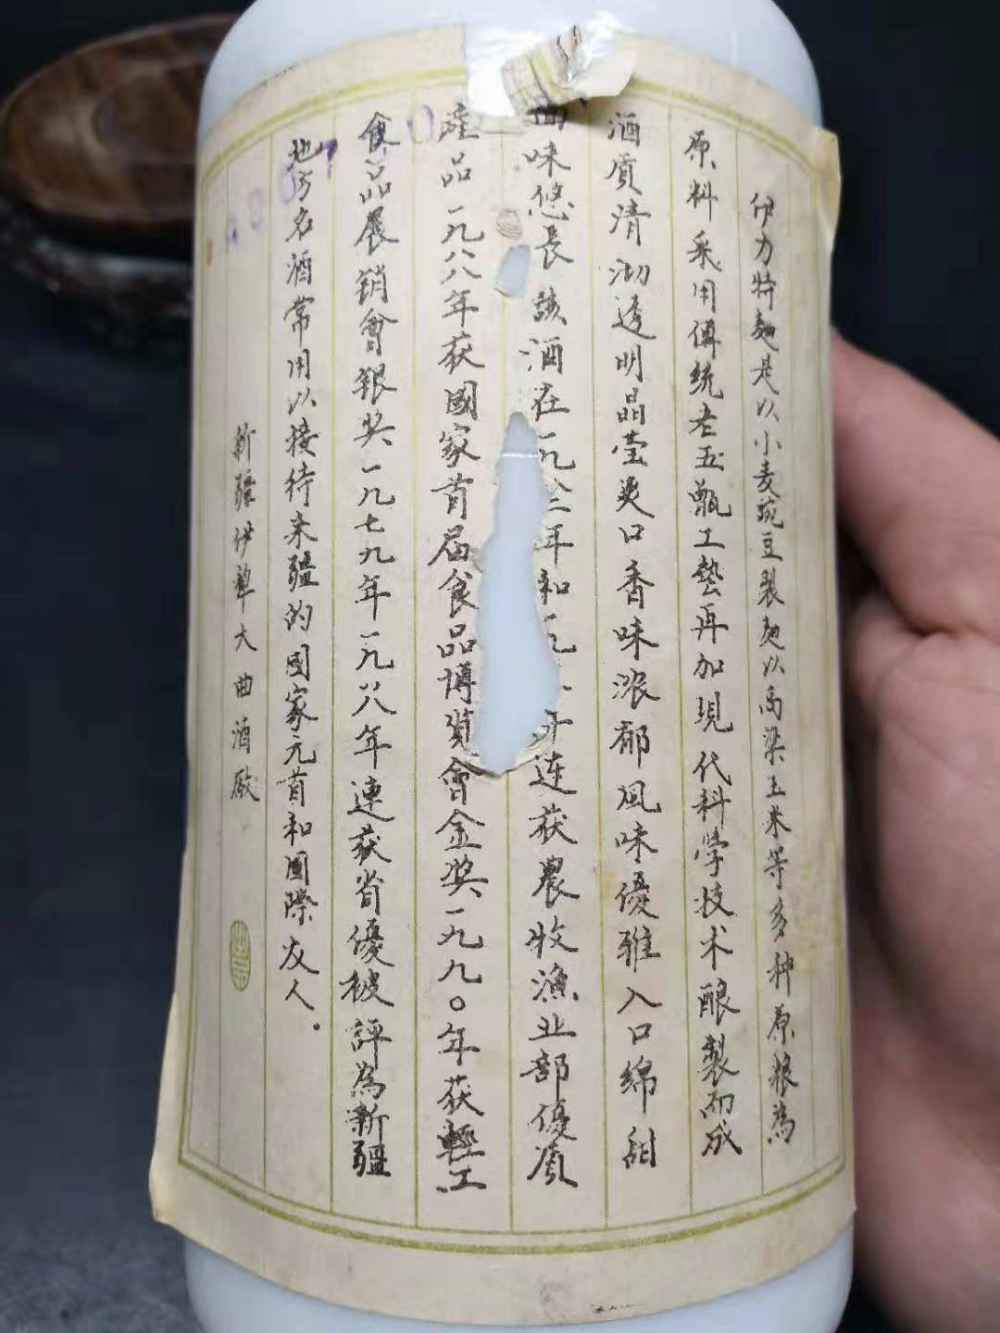 伊力特麯是以小麦豌豆製麯以高粱玉米等多种原粮為
原料采用傳统老五甑工藝再加現代科学技术酿製而成
酒質清沏透明晶莹爽口香味浓郁風味優雅入口绵甜
回味悠長該酒在一九年和一九年连获農牧漁业部優質
産品一九八八年获國家首届食品博览會金奖一九九〇年获輕工
食品展销會银奖一九七九年一九八八年連获省優被評為新疆
地方名酒常用以接待来疆的國家元首和國際友人.
新疆伊犁大曲酒廠